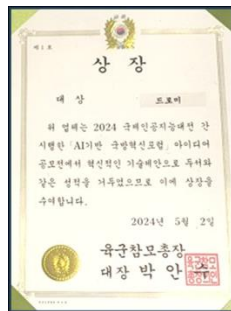 제 1 호
상 장
대 상 드로미
위 업체는 2024 국제인공지능대전 간
시행한 「AI기반 국방혁신포럼」 아이디어
공모전에서 혁신적인 기술제안으로 두서와
같은 성적을 거두었으므로 이에 상장을
수여합니다.
2024년 5월 2일
육군참모총장
대장 박 안 수